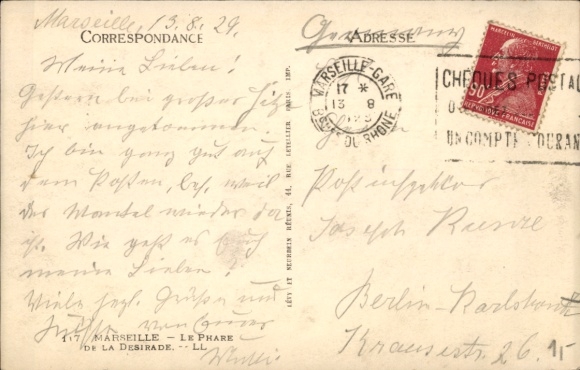 Marseille, 13.8.29.
CORRESPONDANCE
Meine Lieben!
Gestern bei großer Hitze
hier angekommen.
Ich bin ganz gut auf
dem Posten, bes. weil
der Mantel wieder da
ist. Wie geht es Euch
meine Lieben?
Viele herzl. Grüße und
Küsse von Eurer
117 MARSEILLE - LE PHARE
DE LA DESIRADE. - LL
LÉVY ET NEURDEIN RÉUNIS, 44, RUE LETELLIER PARIS IMP.
Germany
ADRESSE
MARSEILLE-GARE
17 *
13 8
B. DU RHONE
MARCELIN BERTHELOT
90c
REPUBLIQUE FRANÇAISE
CHÈQUES POSTAU
UN COMPTE COURAN
Herrn
Postinspektor
Joseph Kunze
Berlin-Karlshorst
Krausestr. 26.
1,-